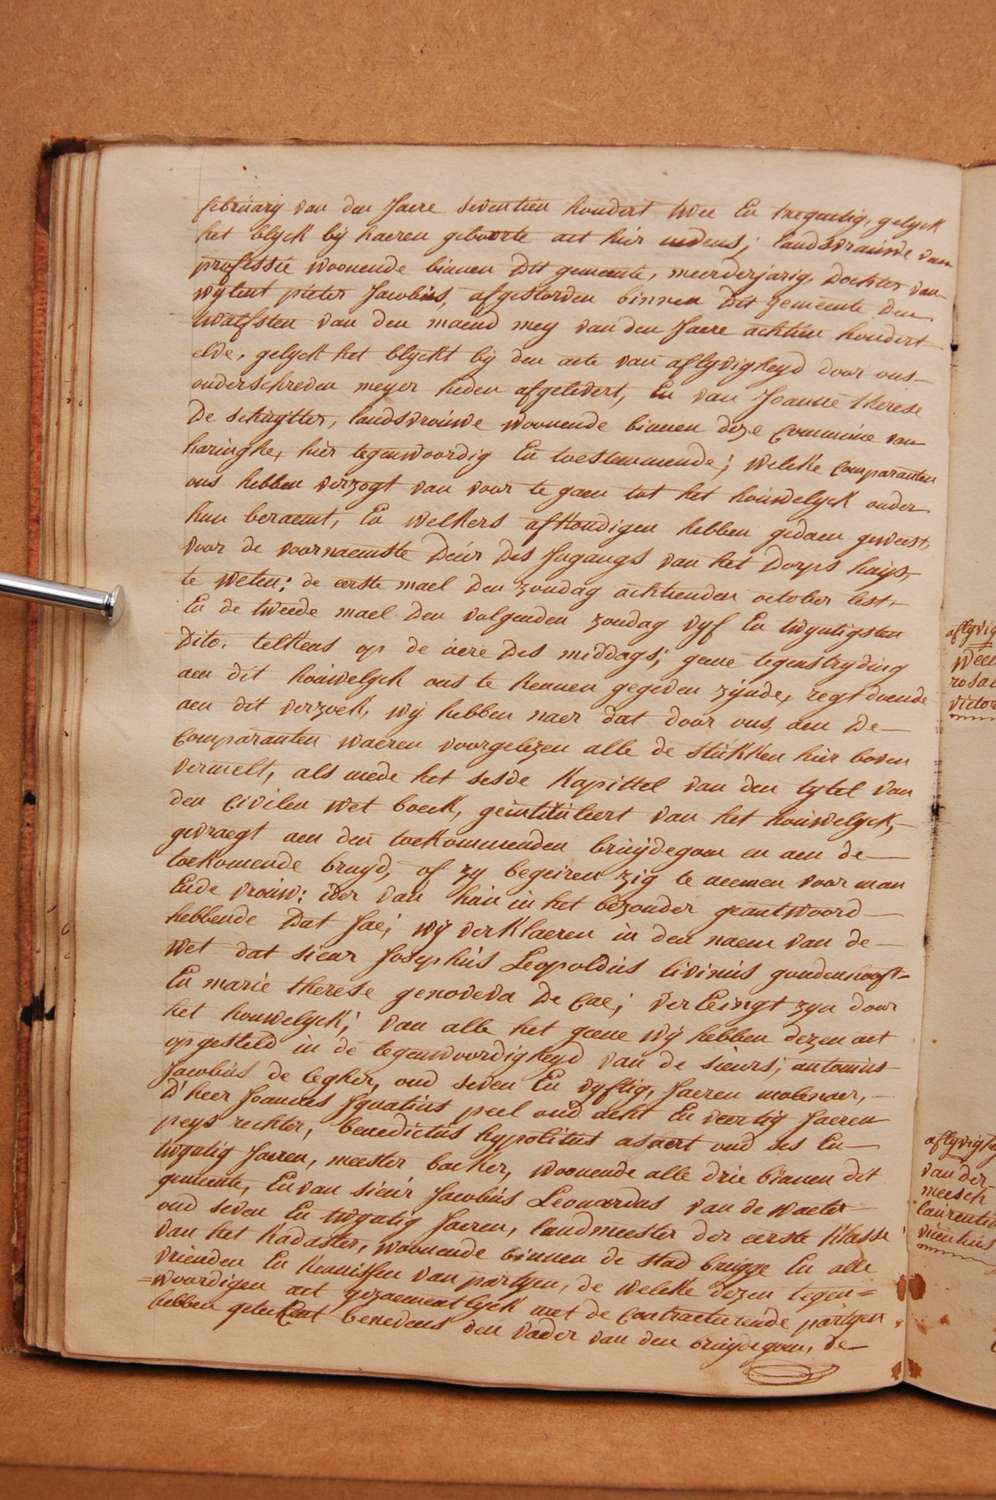 februarij van den Jaere seventien hondert twee En tnegentig, gelyck
het blyck bij haeren geboorte act hier nedens; landsvrauwe van
professie woonende binnen dit gemeente, meerderjarig, dochter van
wylent pieter Jacobus, afgestorven binnen dit gemeente den
twalfsten van den maend mey van den Jaere achtien hondert
elve, gelyck het blyckt bij den acte van aflyvigheyd door ons
onderschreven meyer heden afgelevert, En van Joanne therese
De schuytter, landsvrouwe woonende binnen deze Commune van
haringhe, hier tegenwoordig En toestemmende; welcke comparanten
ons hebben verzogt van voor te gaen tot het houwelyck onder
hun beraemt, En welkers afkondigen hebben gedaen geweest,
voor de voornaemste deur des Ingangs van het Dorps huys,
te weten: de eerste mael den zondag achtienden october lest,
En de tweede mael den volgenden zondag vyf En twyntigsten
dito. telkens op de uere des middags; geene tegenstryding
aen dit houwelyck ons te kennen gegeven zynde, regt doende
aen dit verzoek, wy hebben naer dat door ons aen de
comparanten waeren voorgelezen alle de stukken hier boven
vermelt, als mede het sesde kapittel van den tytel van
den civilen wet boeck, geintituleert van het houwelyck,
gevraegt aen den toekommenden bruydegom en aen de
toekomende bruyd, of zy begeiren zig te neemen voor man
Ende vrouw: ider van hun in het bezonder geantwoord
hebbende Dat Jae; wy verklaeren in den naem van de
wet dat sieur Josephus Leopoldus livinus goudenhooft
En marie therese genoveva De Cae; vereingt zyn door
het houwelyck; van alle het geene wy hebben dezen act
opgesteld in de tegenwoordigheyd van de sieurs; antonius
Jacobus de legher, oud seven En vyftig Jaeren molenaer,
D'heer Joannes Ignatius peel oud acht En veertig Jaeren
peys rechter, benedictus hypolitus asaert oud ses En
twyntig Jaeren, meester backer, woonende alle drie binnen dit
gemeente, En van sieur Jacobus Leonardus van de waeter
oud seven En twyntig Jaeren, landmeester der eerste klasse
van het kadaster, woonende binnen de stad brugge En alle
vrienden En kennissen van partyen, de welcke dezen tegen=
=woordigen act gezaementlyck met de contracteerende partyen
hebben geteekent benevens den vader van den bruydegom, de
aflyvig
rosal
victor
aflyvigh
van der
meesch
laurentiu